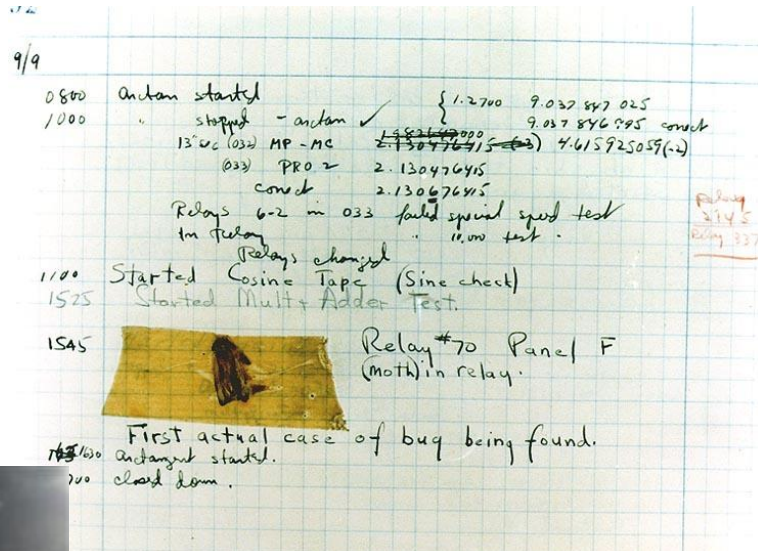 9/9
0800 arctan started
1.2700 9.037 847 025
1000 " stopped - arctan ✓ 9.037 846 995 correct
13" (032) MP - MC 2.130476415 4.615925059(-2)
(033) PRO 2 2.130476415
correct 2.130676415
Relays 6-2 in 033 failed special speed test
In Relay " 10.000 test.
Relays changed
Relay
2145
Relay 337
1100 Started Cosine Tape (Sine check)
1525 Started Mult + Adder Test.
1545 Relay #70 Panel F
(moth) in relay.
First actual case of bug being found.
1630 arctangent started.
1700 closed down.